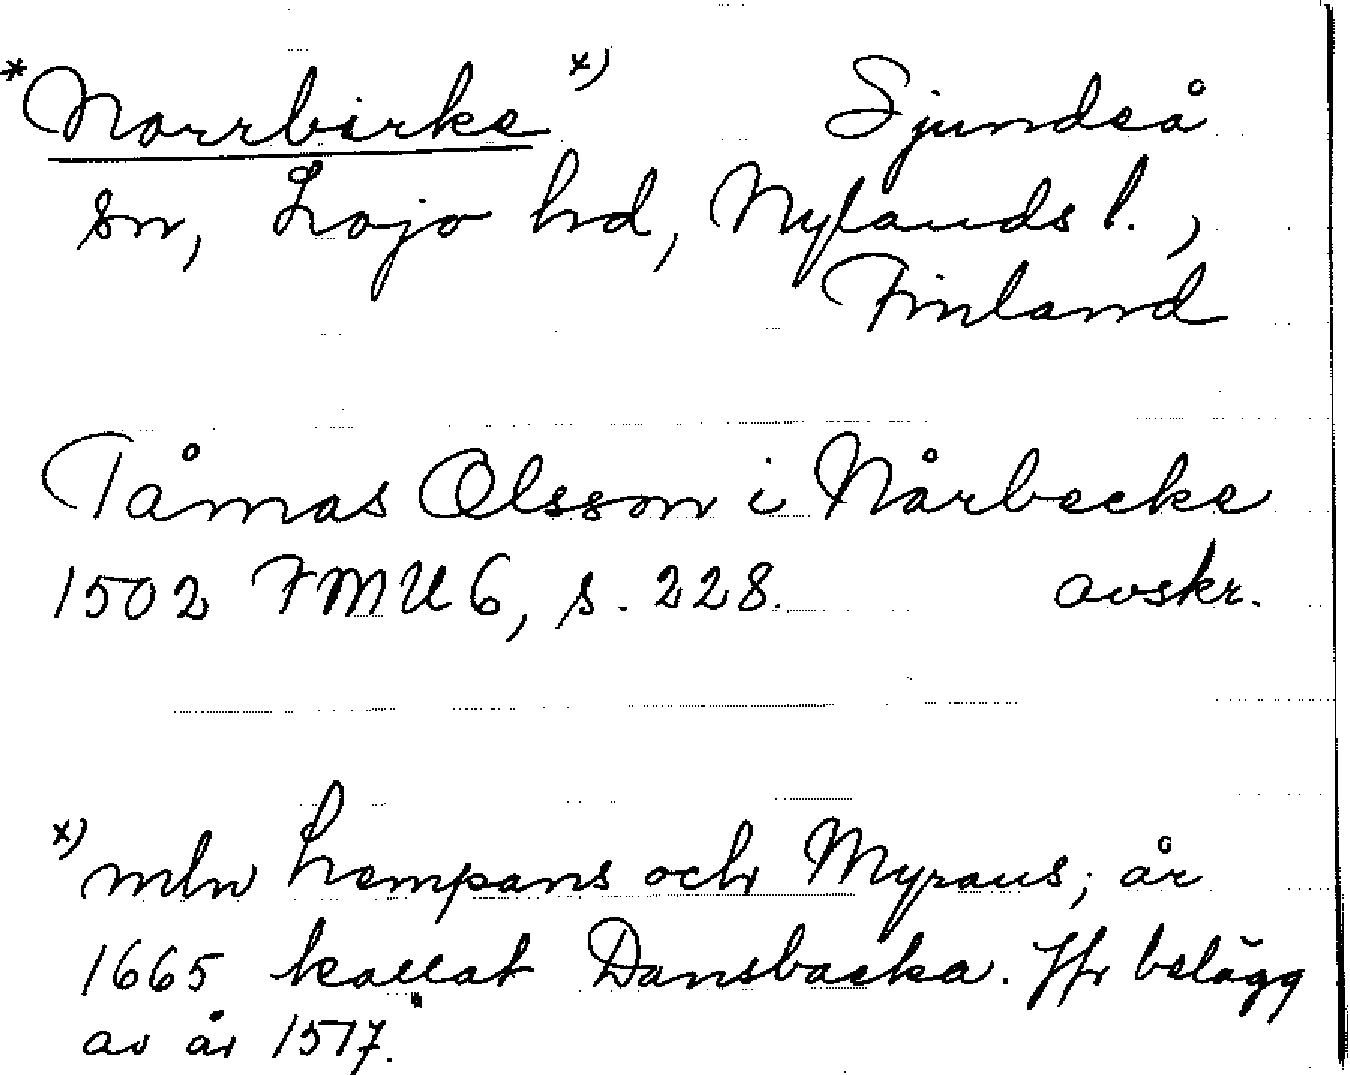 *Norrbirke x) Sjundeå
sn, Lojo hd, Nylands l.,
Finland
Tåmas Olsson i Nårbecke
1502 FMU 6, s. 228. avskr.
x) mln Lempans och Myraus; år
1665 kallat Dansbacka. Jfr belägg
av år 1517.